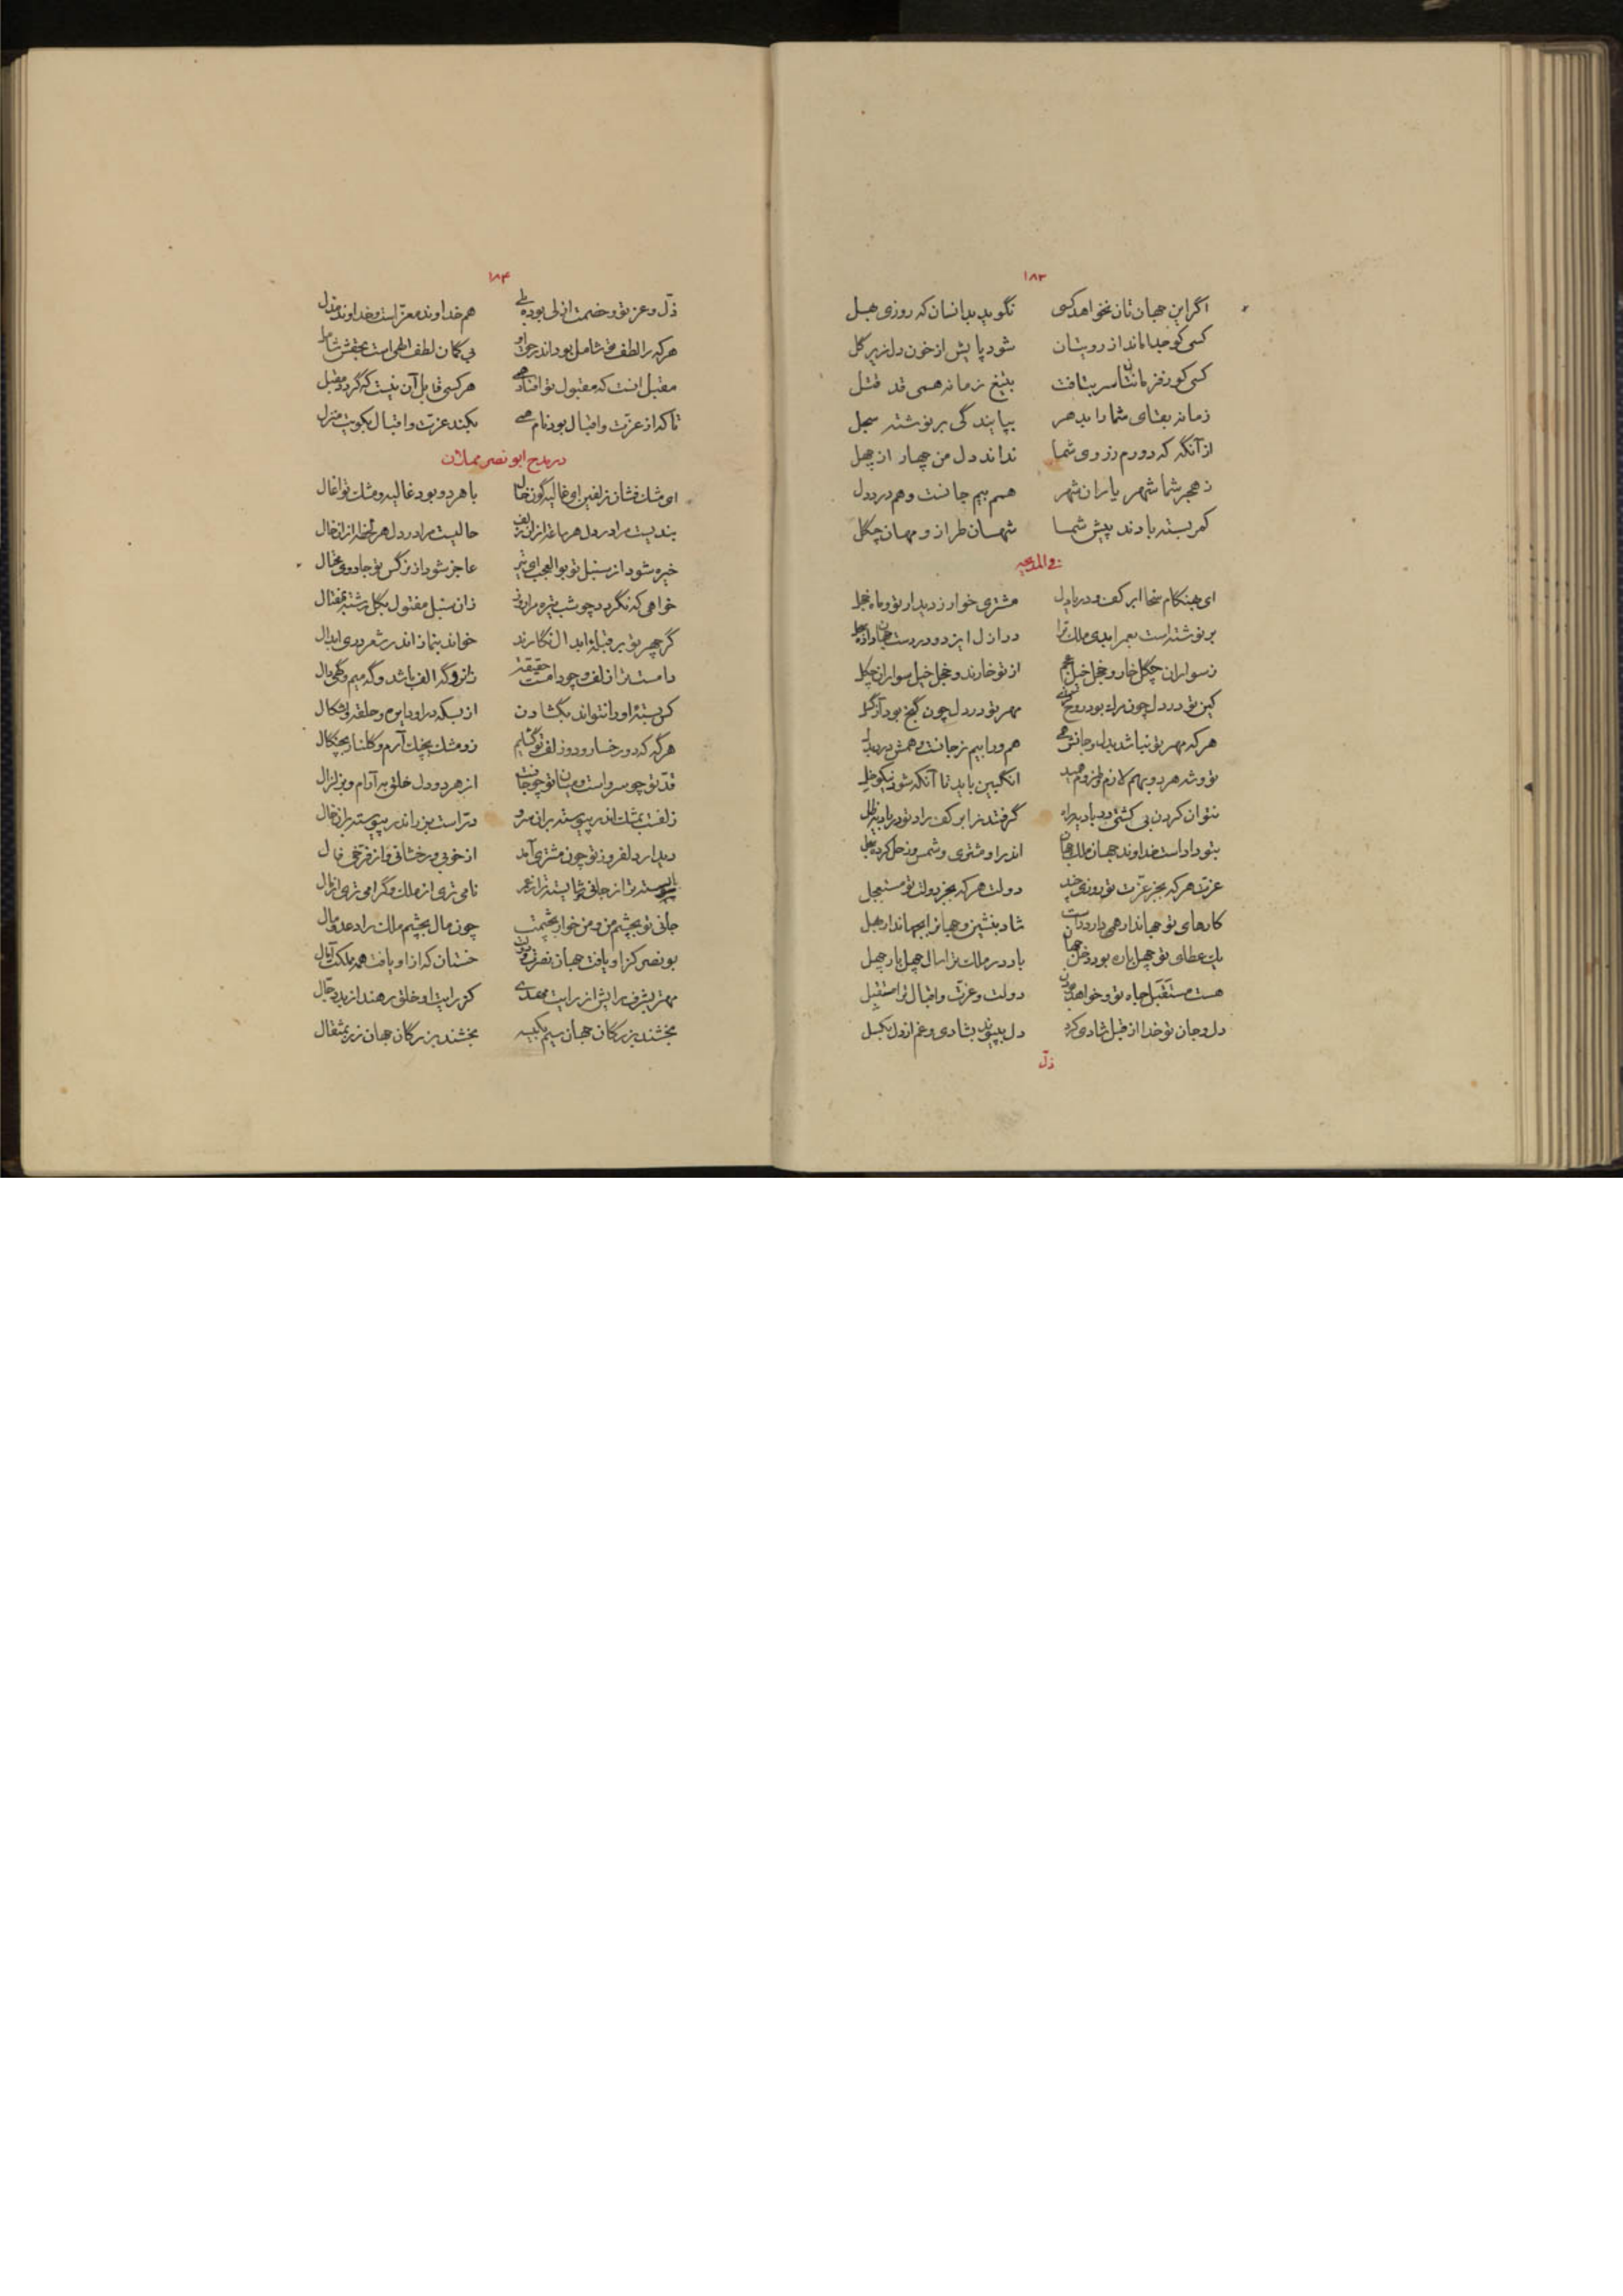 ۱۸۳
اگر این جهان تان نخواهد کسی نگوید بدانسان که روزی هبل
کسی کو جدا ماند از رویتان شود پایش از خون دل زیر گل
کسی کو ز فرمانتان سر بتافت بتیغ زمانه همی قد قتل
زمانه بقای شما را بدهر بپایندگی بر نوشته سجل
از آنگه که دورم ز روی شما نداند دل من چهار از چهل
ز هجر شما شهریاران شهر همم بیم جانست و هم درد دل
کمر بسته بادند پیش شما شهان طراز و مهان چگل
فی المدیحه
ای بهنگام سخا ابر کف و دریا دل مشتری خوار ز دیدار تو و ماه خجل
بر نوشته است بعمر ابدی ملک ترا در ازل ایزد و در دست جهان داده سجل
ز سواران چگل خار و خجل خیل عجم از تو خارند و خجل خیل سواران چگل
کین تو در دل چون بود مهر تو در دل چون گنج بود
هر که مهر تو نباشد بدل و جانش همی هم ورا بیم ز جانست و همش درد بدل
تو و شه هر دو بهم لازم و ملزوم همید انگبین باید تا آنکه شود نیکو خل
نتوان کردن بی کشتی در بادیه راه گرفتد ز ابر کف راد تو در بادیه ظل
بتو داد است خداوند جهان ملک جهان اندر او مشتری و شمس و زحل کرده بحل
عزت هر که بجز عزت تو روزی چند دولت هر که بجز دولت تو مستعجل
کارهای تو جهاندار همی دارد راست شاد بنشین و جهان را بجهاندار بهل
یک عطای تو چهل باره بود دخل جهان باد در ملک ترا سال چهل بار چهل
هست مستقبل جاه تو و خواهد بودن دولت و عزت و اقبال ترا مستقبل
دل و جان تو خدا از قبل شادی کرد دل بپیوند بشادی و غم از دل بگسل
ذل
۱۸۴
ذل و عز تو و خصمت ازلی بود بلی هم خداوند معز است و خداوند مذل
هر که را لطف حق شامل بود اندر حق او بی گمان لطف الهی است بحقش شامل
مقبل آنست که مقبول تو افتاد همی هر کسی قابل آن نیست که گردد مقبل
تا که از عزت و اقبال بود نام همی بکند عزت و اقبال بکویت منزل
در مدح ابو نصر مملان
ای مشک فشان زلفین ای غالیه گون خال با هر دو بود غالیه و مشک تو اخال
بندیست مرا در دل هر ساعت از آن زلف حالیست مرا در دل هر لحظه از آن خال
خیره شود از سنبل تو بوالعجب عاجز شود از نرگس تو جادوی محتال
خواهی که نگردد چو شب تیره مرا روز زان سنبل مفتول بگل رشته مفتال
گر چهر تو بر قبله ابدال نگارند خواند بنماز اندر شعر دری ابدال
دامست ترا زلف و چو دامست حقیقت زانرو گه الف باشد و گه میم و گهی دال
کس بسته او را نتواند بگشادن از بسکه در او دایره و حلقه و اشکال
هر گه که دو رخسار و دو زلف تو گشایم زو مشک بچنگ آرم و گلنار بچنگال
قد تو چو سرو است و میان تو چو از هر دو دل خلق به آرام و بزلزال
زلفت بمشک اندر پیوسته بران مرو در است بزر اندر پیوسته بران خال
دیدار دلفروز تو چون مشتری آمد از خوبی و رخشانی و از فرخی فال
بایسته تر از جانی و شایسته تر از عمر نامی تری از ملک و گرامی تری از مال
جانی تو بچشم من و من خوار بچشمت چون مال بچشم ملک راد عدو مال
بو نصر کز او یافت جهان نصرت خنسان که ازاو یافت همه مملکت
مهتر بشرف رایش از رایت مهدی کز رایت او خلق رهند از ید دجال
بخشند بزرگان جهان سیم بکیسه بخشند بزرگان جهان زر بمثقال